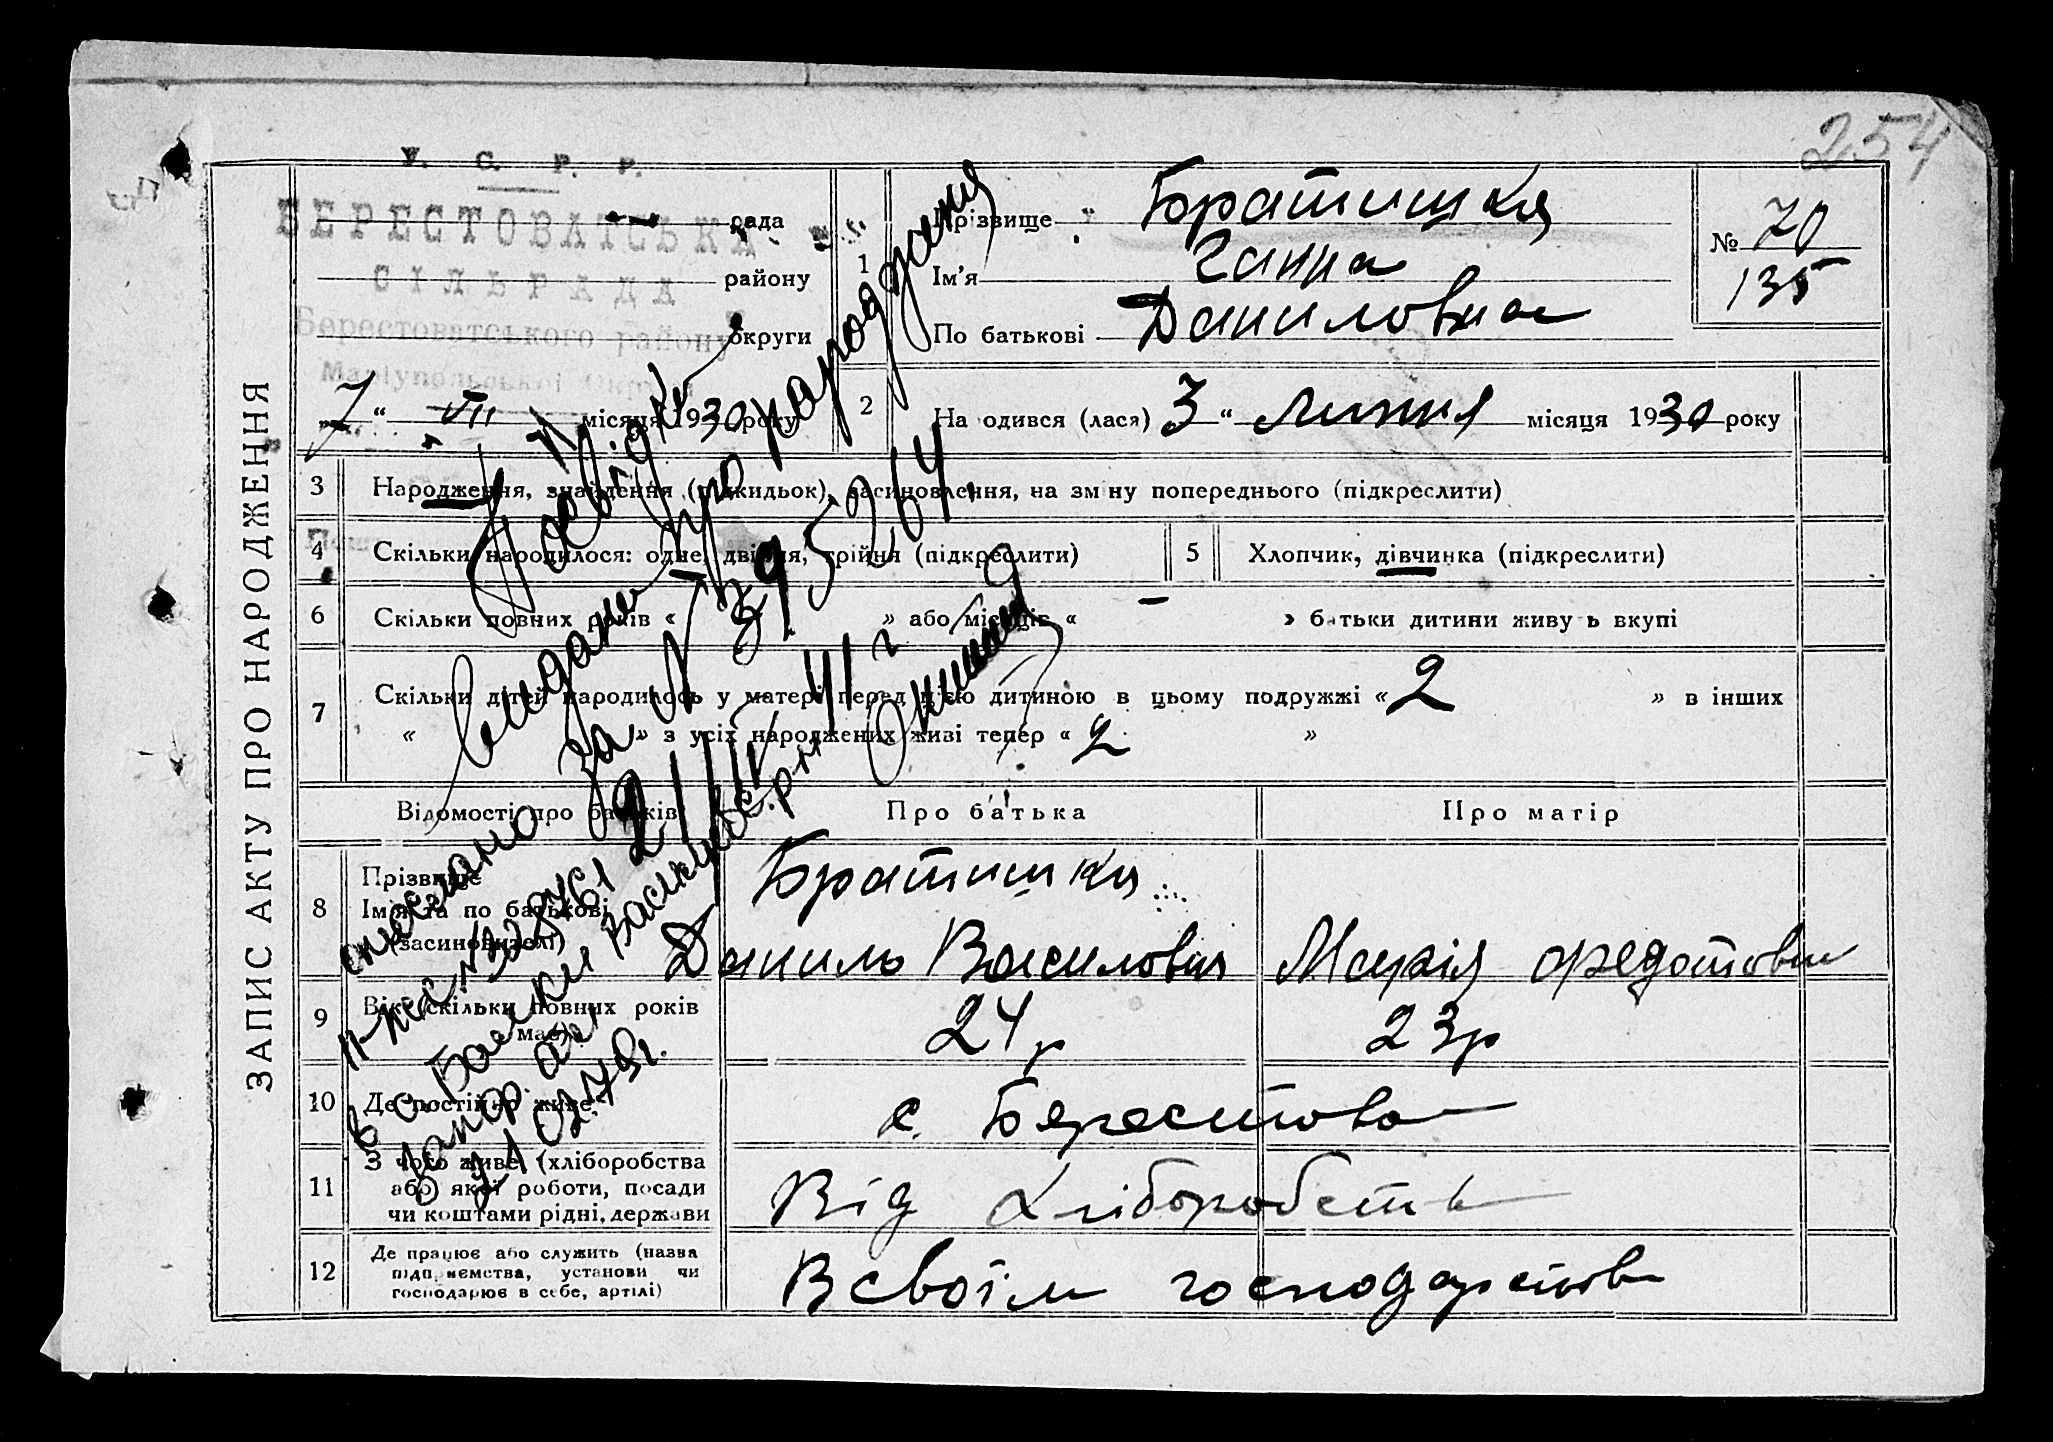 254
У. С. Р. Р.
БЕРЕСТОВАТСЬКА рада
СІЛЬРАДА району
Берестоватського району округи
Маріупольської Округи
7 " VII місяця 1930 року
1 Прізвище Братишка
Ім'я Ганна
По батькові Даниловна
№ 70
135
2 Народився (лася) 3 " липня місяця 1930 року
ЗАПИС АКТУ ПРО НАРОДЖЕННЯ
3 Народження, знайдення (підкидьок), засиновлення, на зміну попереднього (підкреслити)
4 Скільки народилося: одне, двійня, трійня (підкреслити)
5 Хлопчик, дівчинка (підкреслити)
6 Скільки повних років « — » або місяців « » батьки дитини живуть вкупі
7 Скільки дітей народилось у матері перед цією дитиною в цьому подружжі « 2 » в інших
« » з усіх народжених живі тепер « 2 »
Відомості про батьків Про батька Про матір
8 Прізвище
Ім'я та по батькові
(засиновителі)
Братишка
Данило Василович Марія Федотовна
9 Вік (скільки повних років
має)
24 р 23 р
10 Де постійно живе
с. Берестова
11 З чого живе (хліборобства
або якої роботи, посади
чи коштами рідні, держави
Від хліборобств
12 Де працює або служить (назва
підприємства, установи чи
господарює в себе, артілі)
В своїм господарстві
Посвідку
про народження
видано
за № 395264.
21/IV 41 г